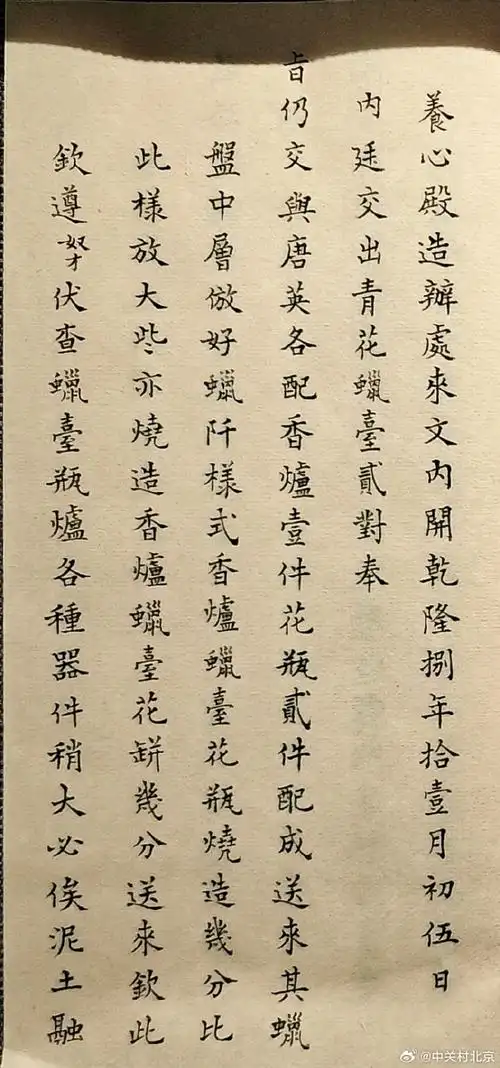 養心殿造辦處來文內開乾隆捌年拾壹月初伍日
內廷交出青花蠟臺貳對奉
旨仍交與唐英各配香爐壹件花瓶貳件配成送來其蠟
盤中層倣好蠟阡樣式香爐蠟臺花瓶燒造幾分比
此樣放大些亦燒造香爐蠟臺花缾幾分送來欽此
欽遵奴才伏查蠟臺瓶爐各種器件稍大必俟泥土融
@中关村北京